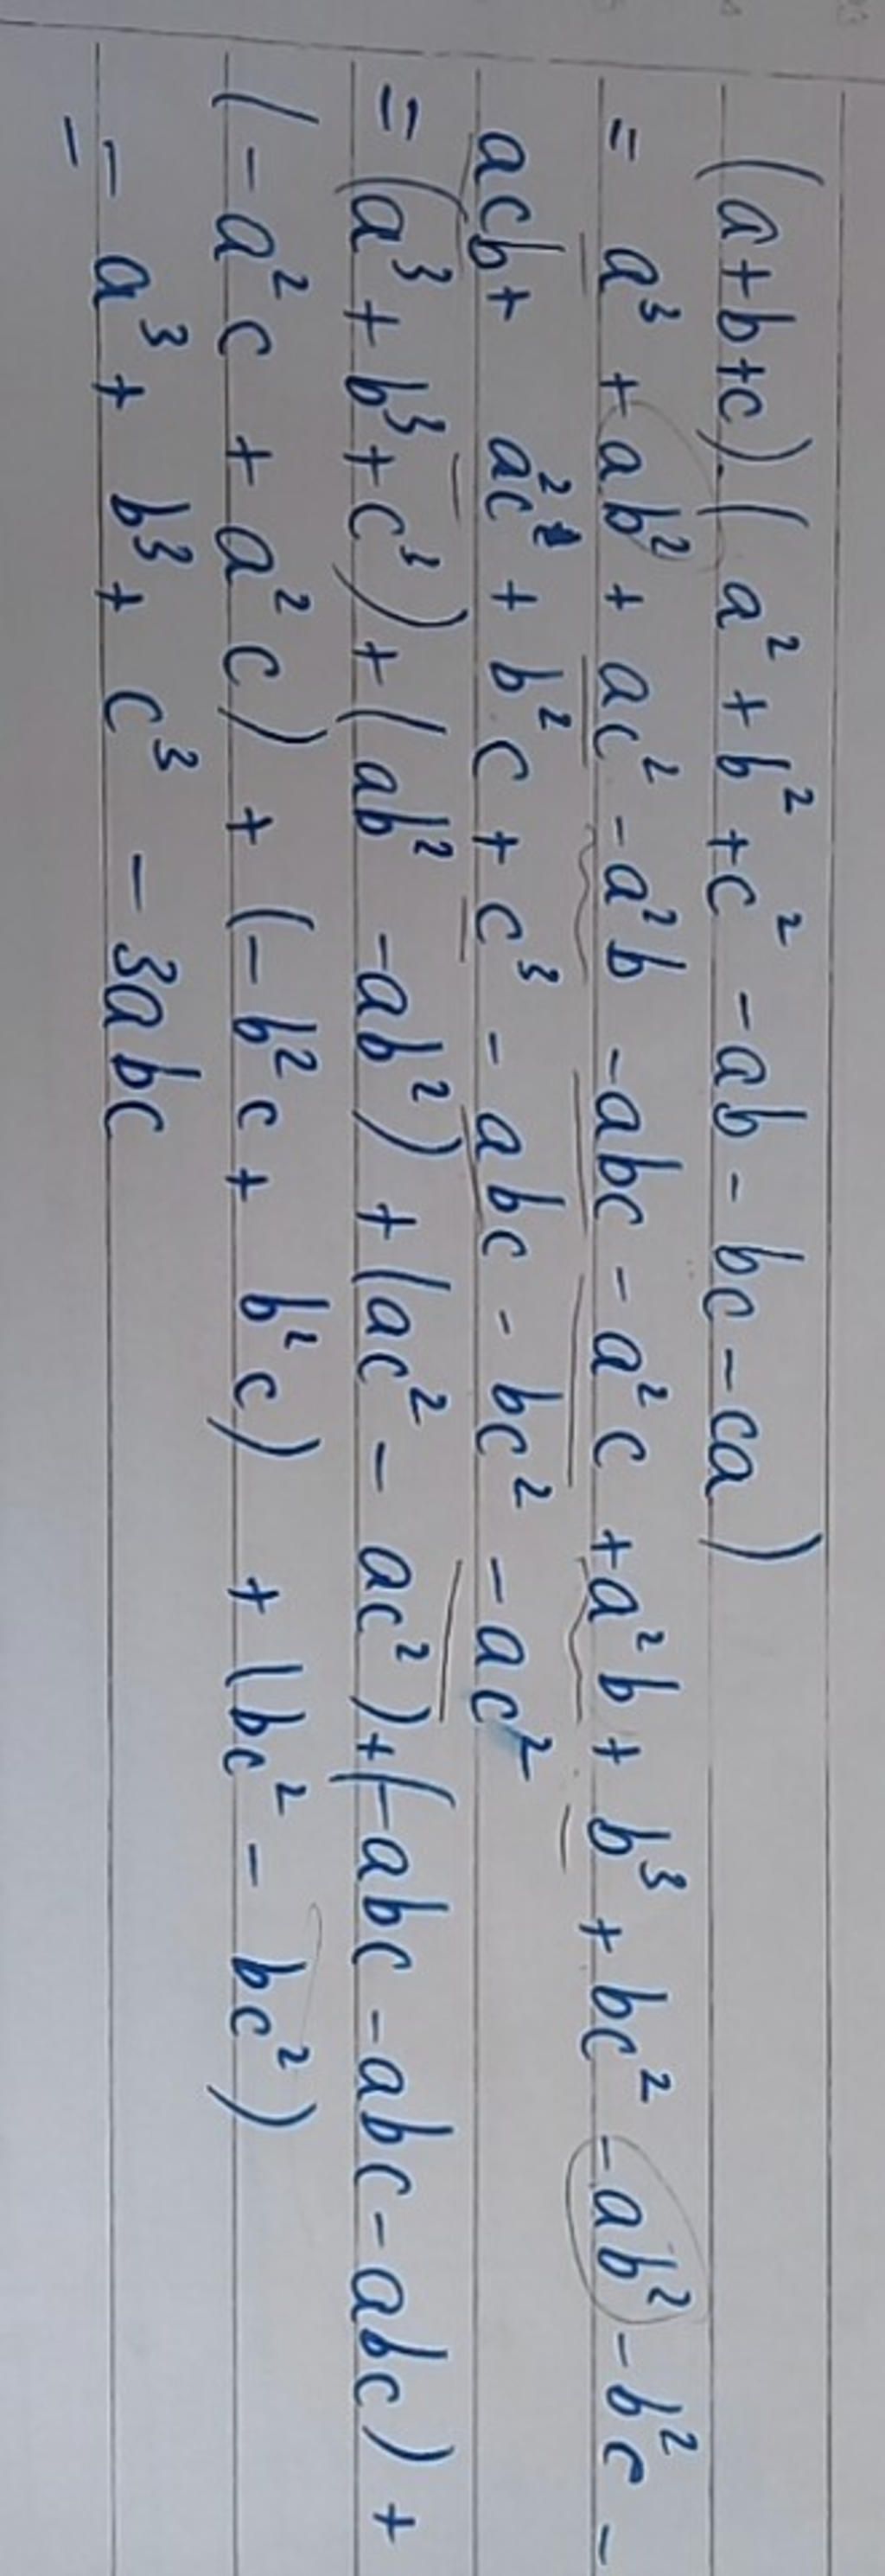 (a+b+c).(a² + b² + c² - ab - bc - ca)
= a³ + ab² + ac² - a²b - abc - a²c + a²b + b³ + bc² - ab² - b²c -
acb + ac² + b²c + c³ - abc - bc² - ac²
= (a³ + b³ + c³) + (ab² - ab²) + (ac² - ac²) + (-abc - abc - abc) +
(-a²c + a²c) + (-b²c + b²c) + (bc² - bc²)
= a³ + b³ + c³ - 3abc